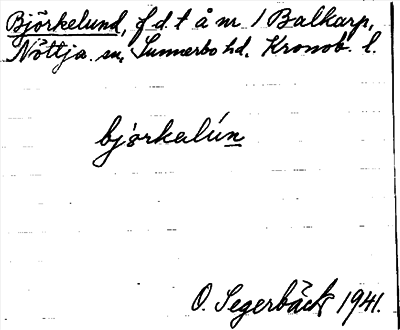 Björkelund, f d. t å nr 1 Balkarp,
Nöttja sn, Sunnerbo hd. Kronob. l.
björkalún
O. Segerbäck 1941.